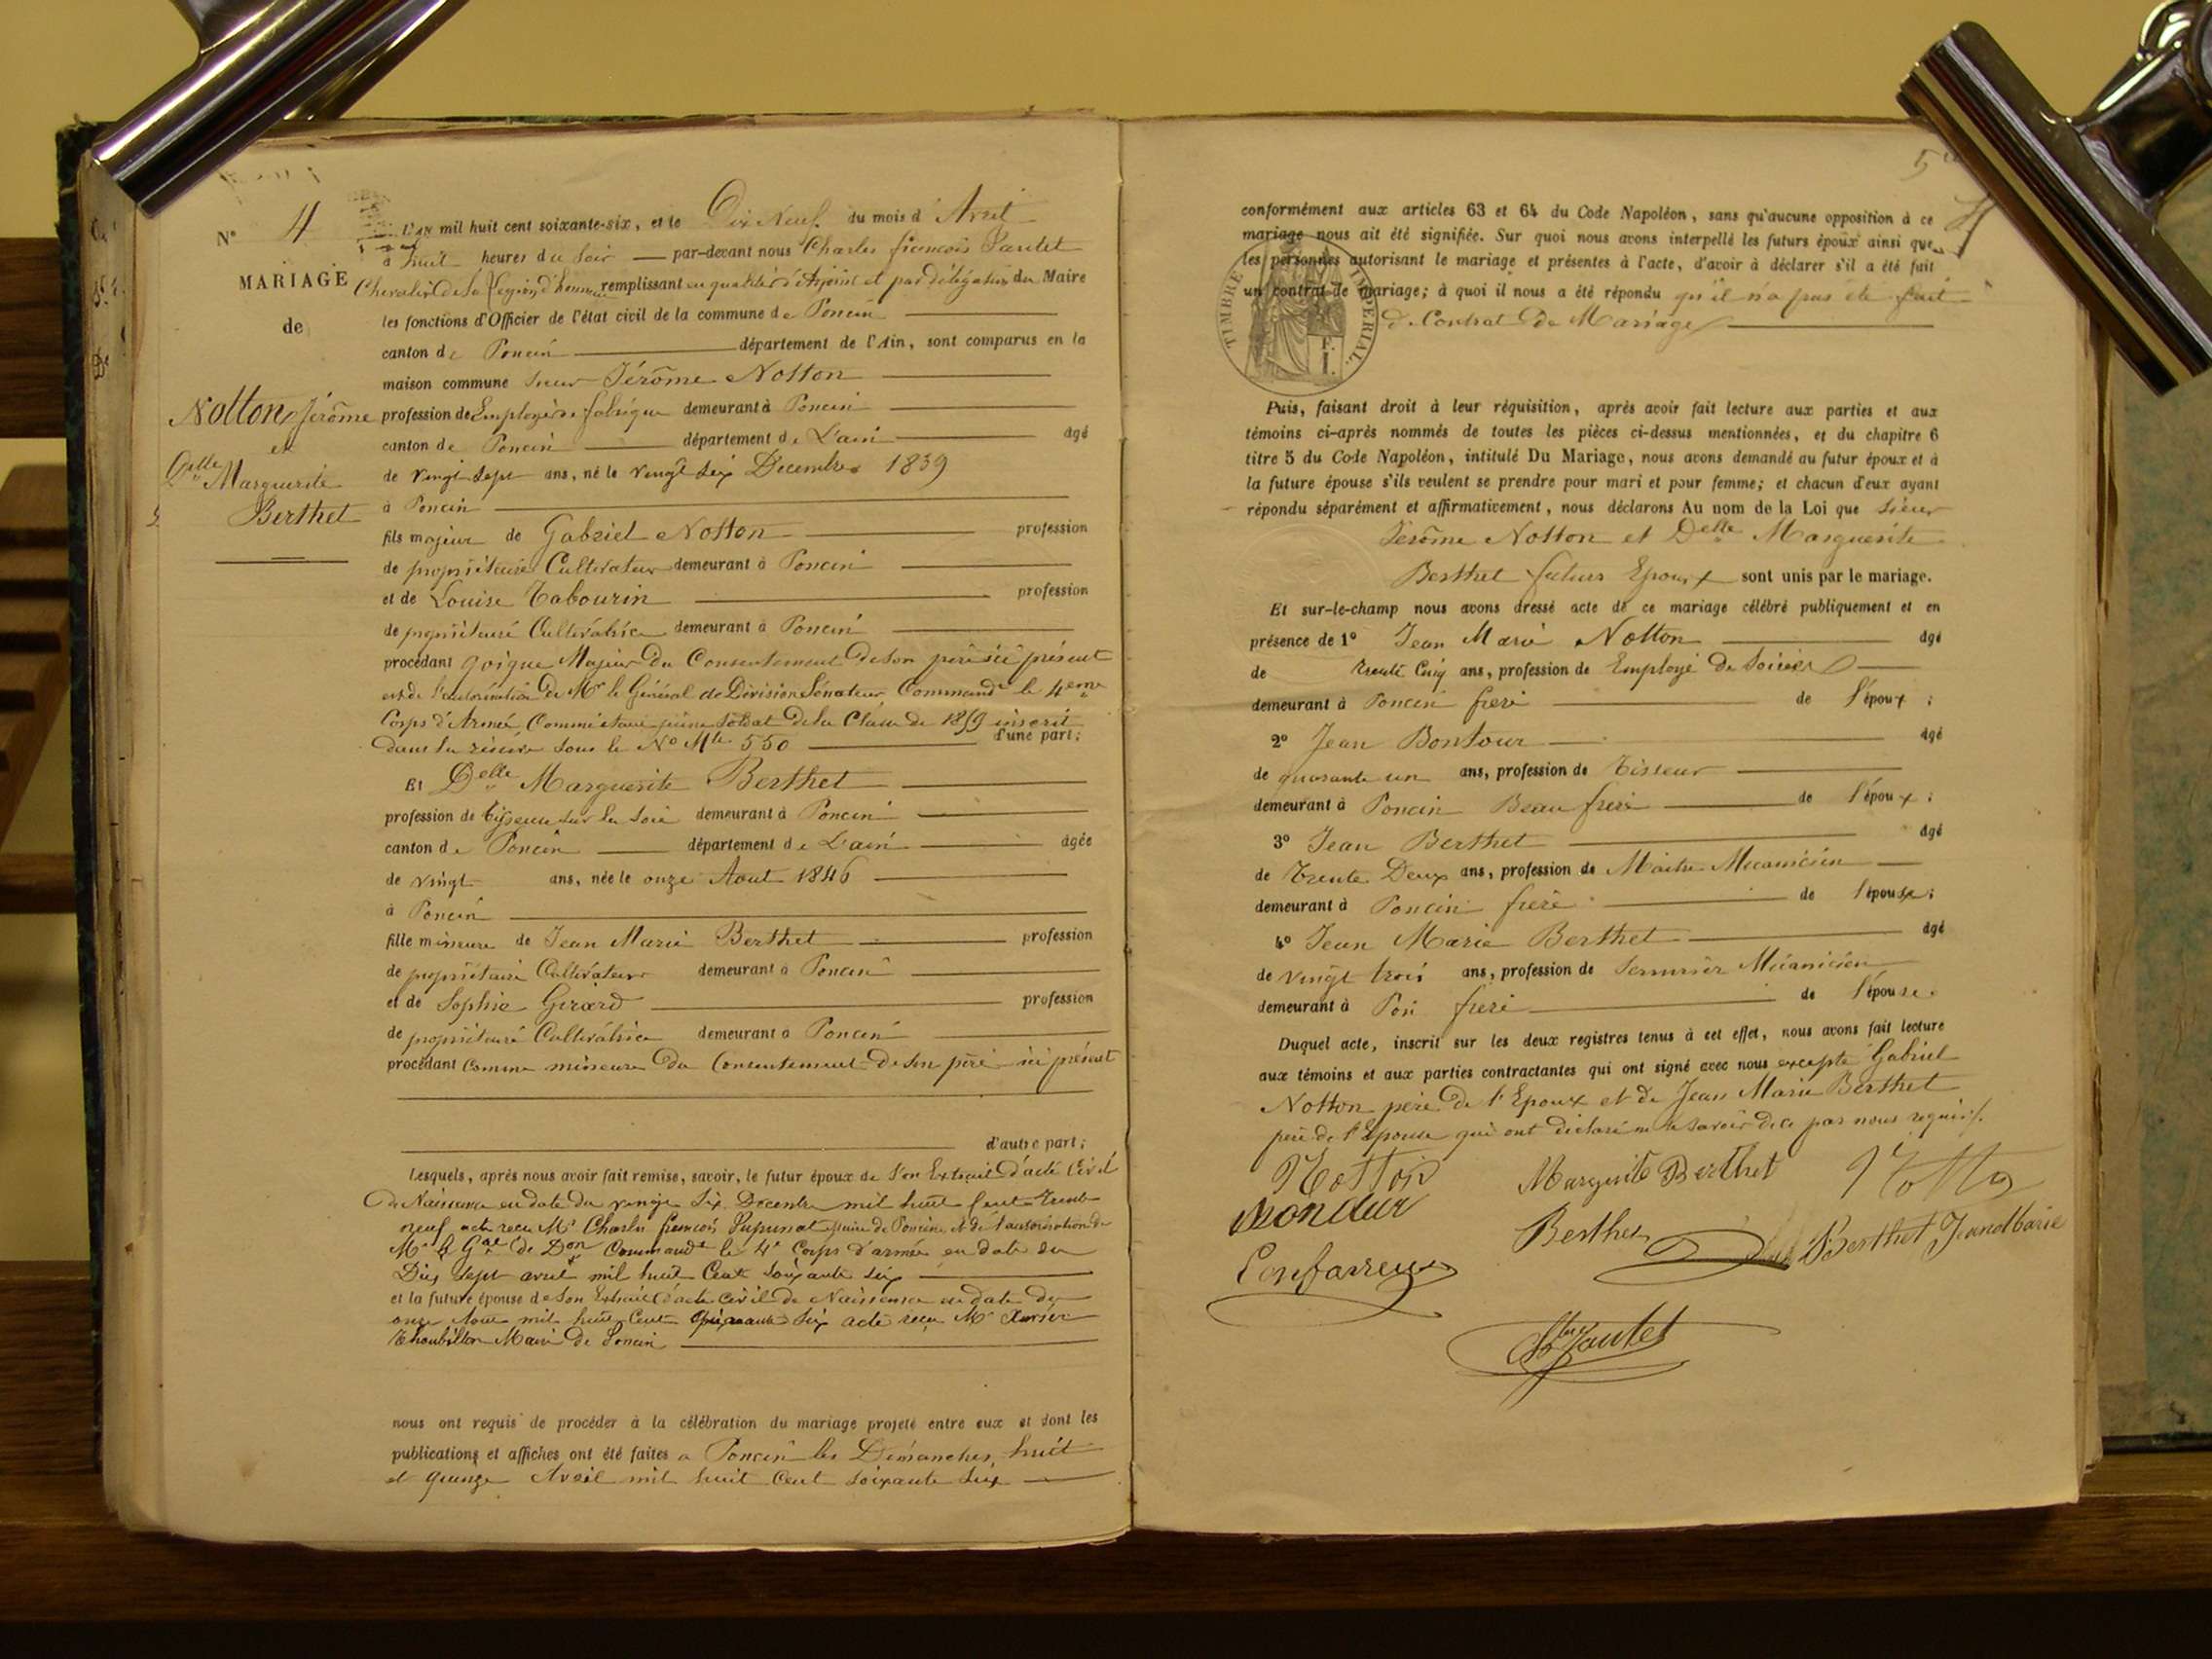 N° 4
MARIAGE
de
Notton Jérôme
et
Delle Marguerite
Berthet
L'AN mil huit cent soixante-six, et le Dix Neuf du mois d'Avril
à huit heures du Soir par-devant nous Charles françois
Chevalier De la Légion d'honneur remplissant en qualité d'Adjoint et par délégation du Maire
les fonctions d'Officier de l'état civil de la commune de Poncin
canton de Poncin département de l'Ain, sont comparus en la
maison commune Sieur Jérôme Notton
profession de Employé de fabrique demeurant à Poncin
canton de Poncin département de L'ain âgé
de vingt sept ans, né le vingt six Decembre 1839
à Poncin
fils majeur de Gabriel Notton profession
de propriétaire Cultivateur demeurant à Poncin
et de Louise Tabourin profession
de propriétaire Cultivatrice demeurant à Poncin
procédant qoique Majeur Du Consentement De son père ici présent
et de l'autorisation De Mr le Général de Division Sénateur Commandt le 4eme
Corps d'Armée, Comme étant jeune Soldat De la Classe de 1859 inscrit
dans la réserve Sous le No Mle 550 d'une part;
Et Delle Marguerite Berthet
profession de tisseuse sur la Soie demeurant à Poncin
canton de Poncin département de L'ain âgée
de vingt ans, née le onze Aout 1846
à Poncin
fille mineure de Jean Marie Berthet profession
de propriétaire Cultivateur demeurant à Poncin
et de Sophie Girard profession
de propriétaire Cultivatrice demeurant à Poncin
procédant Comme mineure Du Consentement De Son père ici présent
d'autre part;
Lesquels, après nous avoir fait remise, savoir, le futur époux de Son Extrait D'acte Civil
De Naissance en date du vingt Six Decembre mil huit Cent trente
neuf acte reçu Mr Charles françois Pupunat maire de Poncin et de l'autorisation de
Mr le Gal de Don Commandt le 4e Corps d'armée en date du
Dix Sept avril mil huit Cent Soixante Six
et la future épouse de Son Extrait d'acte Civil De Naissance en date Du
onze Aout mil huit Cent quarante Six acte reçu Mr
Maire de Poncin
nous ont requis de procéder à la célébration du mariage projeté entre eux et dont les
publications et affiches ont été faites a Poncin les Dimanches huit
et quinze Avril mil huit Cent Soixante Six
conformément aux articles 63 et 64 du Code Napoléon, sans qu'aucune opposition à ce
mariage nous ait été signifiée. Sur quoi nous avons interpellé les futurs époux ainsi que
les personnes autorisant le mariage et présentes à l'acte, d'avoir à déclarer s'il a été fait
un contrat de mariage; à quoi il nous a été répondu qu'il n'a pas été fait
de Contrat De Mariage
TIMBRE IMPÉRIAL.
Puis, faisant droit à leur réquisition, après avoir fait lecture aux parties et aux
témoins ci-après nommés de toutes les pièces ci-dessus mentionnées, et du chapitre 6
titre 5 du Code Napoléon, intitulé Du Mariage, nous avons demandé au futur époux et à
la future épouse s'ils veulent se prendre pour mari et pour femme; et chacun d'eux ayant
répondu séparément et affirmativement, nous déclarons Au nom de la Loi que Sieur
Jérôme Notton et Delle Marguerite
Berthet futurs Epoux sont unis par le mariage.
Et sur-le-champ nous avons dressé acte de ce mariage célébré publiquement et en
présence de 1° Jean Marie Notton âgé
de trente Cinq ans, profession de Employé De Soieries
demeurant à Poncin frere de l'époux;
2° Jean Bontour âgé
de quarante un ans, profession de Tisseur
demeurant à Poncin Beau frere de l'époux;
3° Jean Berthet âgé
de Trente Deux ans, profession de Maitre Mecanicien
demeurant à Poncin frere de l'épouse;
4° Jean Marie Berthet âgé
de vingt trois ans, profession de Serrurier Mécanicien
demeurant à Pon frere de l'épouse.
Duquel acte, inscrit sur les deux registres tenus à cet effet, nous avons fait lecture
aux témoins et aux parties contractantes qui ont signé avec nous excepté Gabriel
Notton père De l'Epoux et de Jean Marie Berthet
père de l'Epouse qui ont déclaré ne le savoir de ce par nous requis
Notton Marguerite Berthet Notton
Berthet Berthet Jean Marie